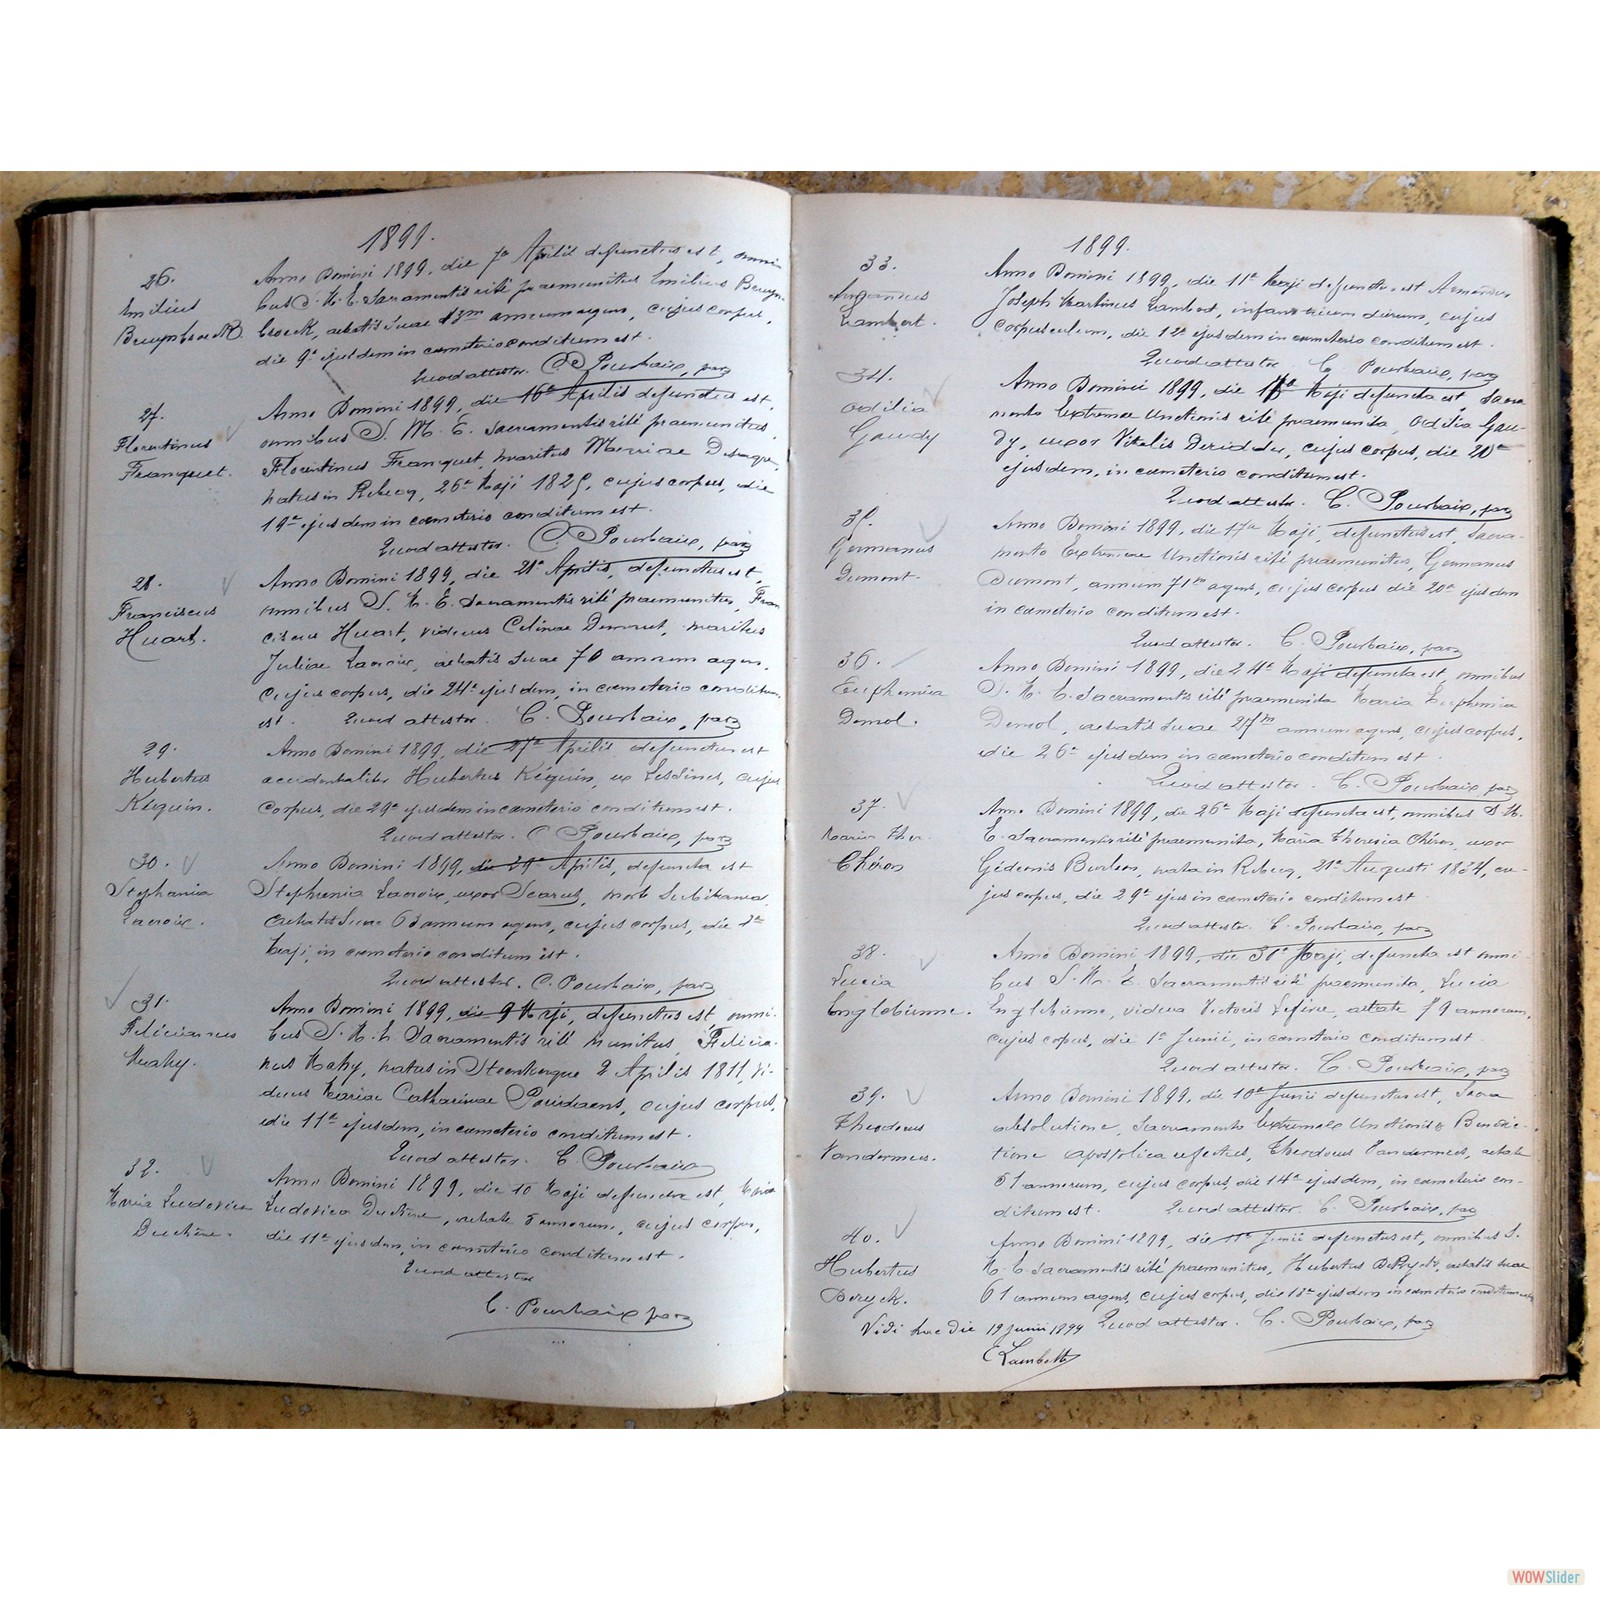 1899.
26.
Emilius
Bruynbroeck.
Anno Domini 1899, die 7a Aprilis defunctus est, omni-
bus S. M. E. Sacramentis rité praemunitus Emilius Bruyn-
broeck, aetatis suae 13m annum agens, cujus corpus,
die 9a ejusdem in cameterio conditum est.
Quod attestor. C. Pourbaix, par
27.
Florentinus
Franquet.
Anno Domini 1899, die 16a Aprilis defunctus est,
omnibus S. M. E. Sacramentis rité praemunitus,
Florentinus Franquet, maritus Mariae
natus in Rebecq, 26a Maji 1825, cujus corpus, die
19a ejusdem in cameterio conditum est.
Quod attestor. C. Pourbaix, par
28.
Franciscus
Huart.
Anno Domini 1899, die 21a Aprilis, defunctus est,
omnibus S. M. E. Sacramentis rité praemunitus, Fran
ciscus Huart, viduus Celinae Demout, maritus
Juliae Lacroix, aetatis suae 70 annum agens,
cujus corpus, die 24a ejusdem, in cameterio conditum
est. Quod attestor. C. Pourbaix, par
29.
Hubertus
Kéquin.
Anno Domini 1899, die 27a Aprilis defunctus est
accidentaliter Hubertus Kéquin, ex Lesdines, cujus
corpus, die 29a ejusdem in cameterio conditum est.
Quod attestor. C. Pourbaix, par
30.
Stephania
Lacroix.
Anno Domini 1899, die 29a Aprilis, defuncta est
Stephania Lacroix, uxor Scarus, morte subitanea,
aetatis suae 63 annum agens, cujus corpus, die
Maji, in cameterio conditum est.
Quod attestor. C. Pourbaix, par
31.
Felicianus
Mahy.
Anno Domini 1899, die 9 Maji, defunctus est, omni-
bus S. M. E. Sacramentis rité munitus, Felicia-
nus Mahy, natus in Steenkerque 2 Aprilis 1811, vi-
duus Mariae Catharinae cujus corpus,
die 11a ejusdem, in cameterio conditum est.
Quod attestor. C. Pourbaix
32.
Maria Ludovica
Duchêne.
Anno Domini 1899, die 10 Maji defuncta est, Maria
Ludovica Duchêne, aetate 5 annorum, cujus corpus,
die 11a ejusdem, in cameterio conditum est.
Quod attestor
C. Pourbaix par
1899.
33.
Armandus
Lambert.
Anno Domini 1899, die 11a Maji defunctus est Armandus
Joseph Martinus Lambert, infans trium dierum, cujus
corpusculum, die 12a ejusdem in cameterio conditum est.
Quod attestor C. Pourbaix, par
34.
Odilia
Gaudy
Anno Domini 1899, die Maji defuncta est, Sacra
mento Extremae Unctionis rité praemunita, Odilia Gau-
dy, uxor Vitalis Deridder, cujus corpus, die 20a
ejusdem, in cameterio conditum est.
Quod attestor. C. Pourbaix, par
35.
Germanus
Dumont.
Anno Domini 1899, die 17a Maji, defunctus est, Sacra-
mento Extremae Unctionis rité praemunitus, Germanus
Dumont, annum 71um agens, cujus corpus die 20a ejusdem
in cameterio conditum est.
Quod attestor. C. Pourbaix, par
36.
Euphemia
Demol.
Anno Domini 1899, die 24a Maji defuncta est, omnibus
S. M. E. Sacramentis rité praemunita Maria Euphemia
Demol, aetatis suae 27m annum agens, cujus corpus,
die 26a ejusdem in cameterio conditum est
Quod attestor. C. Pourbaix, par
37.
Maria Ther.
Chéron
Anno Domini 1899, die 26a Maji defuncta est, omnibus S. M.
E. Sacramentis rité praemunita, Maria Theresia Chéron, uxor
Gédeonis nata in Rebecq, 21a Augusti 1834, cu-
jus corpus, die 29a ejus in cameterio conditum est.
Quod attestor. C. Pourbaix, par
38.
Lucia
Englebienne.
Anno Domini 1899, die 30a Maji, defuncta est omni-
bus S. M. E. Sacramentis rité praemunita, Lucia
Englebienne, vidua Victoris Lefèvre, aetate 79 annorum,
cujus corpus, die 1a Junii, in cameterio conditum est.
Quod attestor. C. Pourbaix, par
39.
Theodorus
Vandermeus.
Anno Domini 1899, die 10a Junii defunctus est, Sacra
absolutione, Sacramento Extremae Unctionis & Benedic-
tione apostolica refectus, Theodorus Vandermeus, aetate
61 annorum, cujus corpus, die 14a ejusdem, in cameterio con-
ditum est. Quod attestor C. Pourbaix, par
40.
Hubertus
Deryck.
Anno Domini 1899, die 11a Junii defunctus est, omnibus S.
M. E. Sacramentis rité praemunitus, Hubertus Deryck, aetatis suae
61 annum agens, cujus corpus, die 13a ejusdem in cameterio conditum est
Vidi hac die 19 Junii 1899 Quod attestor. C. Pourbaix, par
C Lambette
WOWSlider